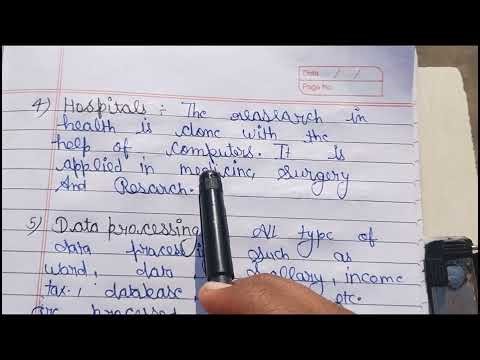 Date / /
Page No.
4) Hospitals :- The reasearch in
health is done with the
help of computers. It is
applied in medicine, surgery
And Research.
5) Data processing All type of
data process such as
word, data sallary, income
tax, database etc.
are processed